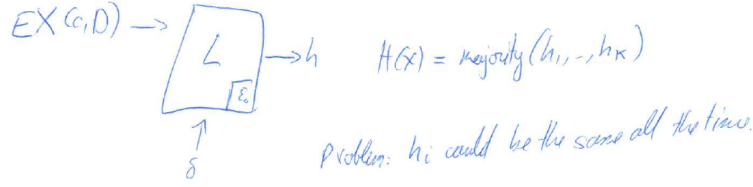 EX(c,D) → L → h
ε₀
δ
H(x) = majority(h₁,..,hₖ)
Problem: hᵢ could be the same all the time.